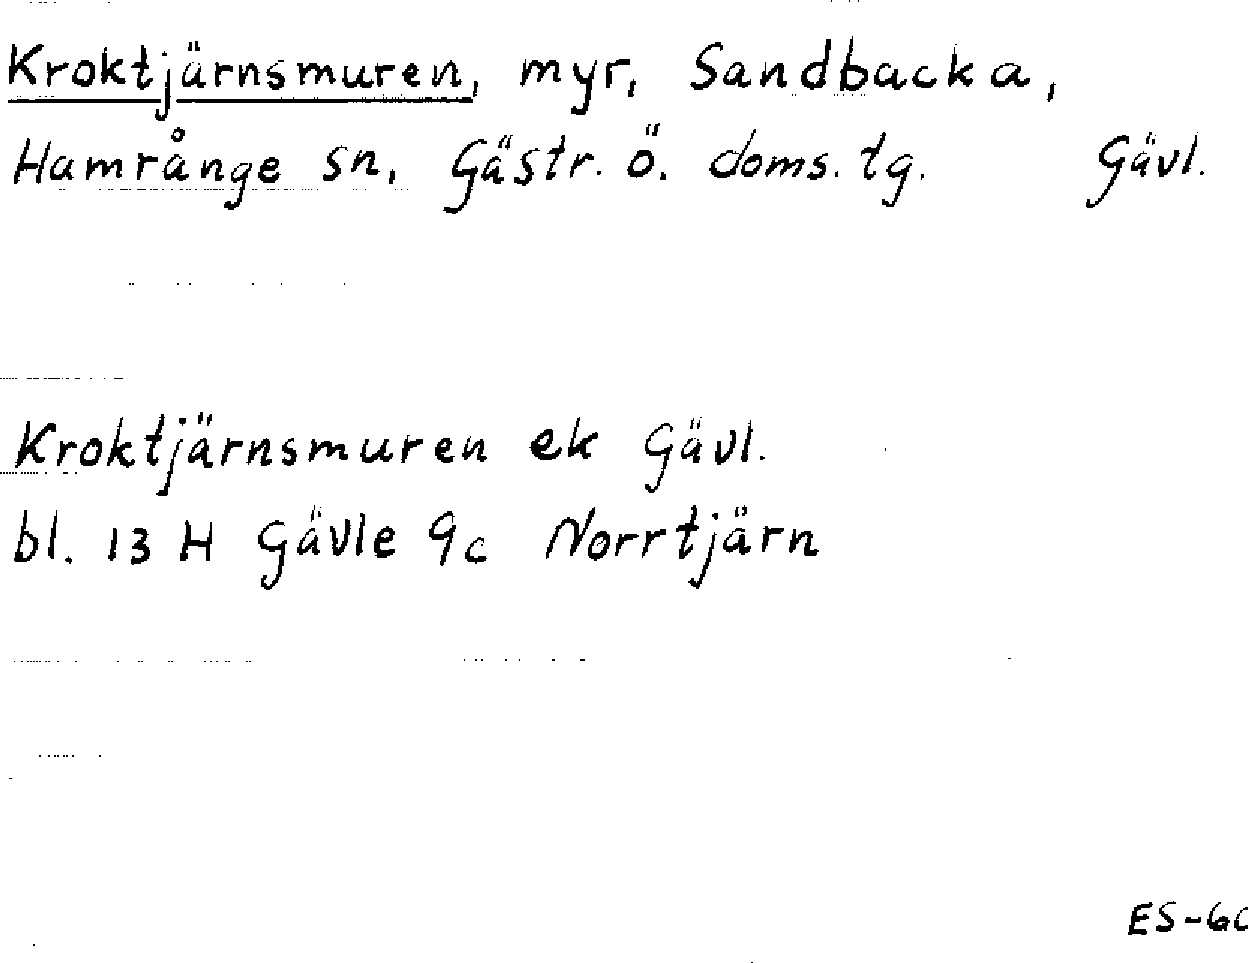 Kroktjärnsmuren, myr, Sandbacka,
Hamrånge sn, Gästr. ö. doms. tg. Gävl.
Kroktjärnsmuren ek Gävl.
bl. 13 H Gävle 9c Norrtjärn